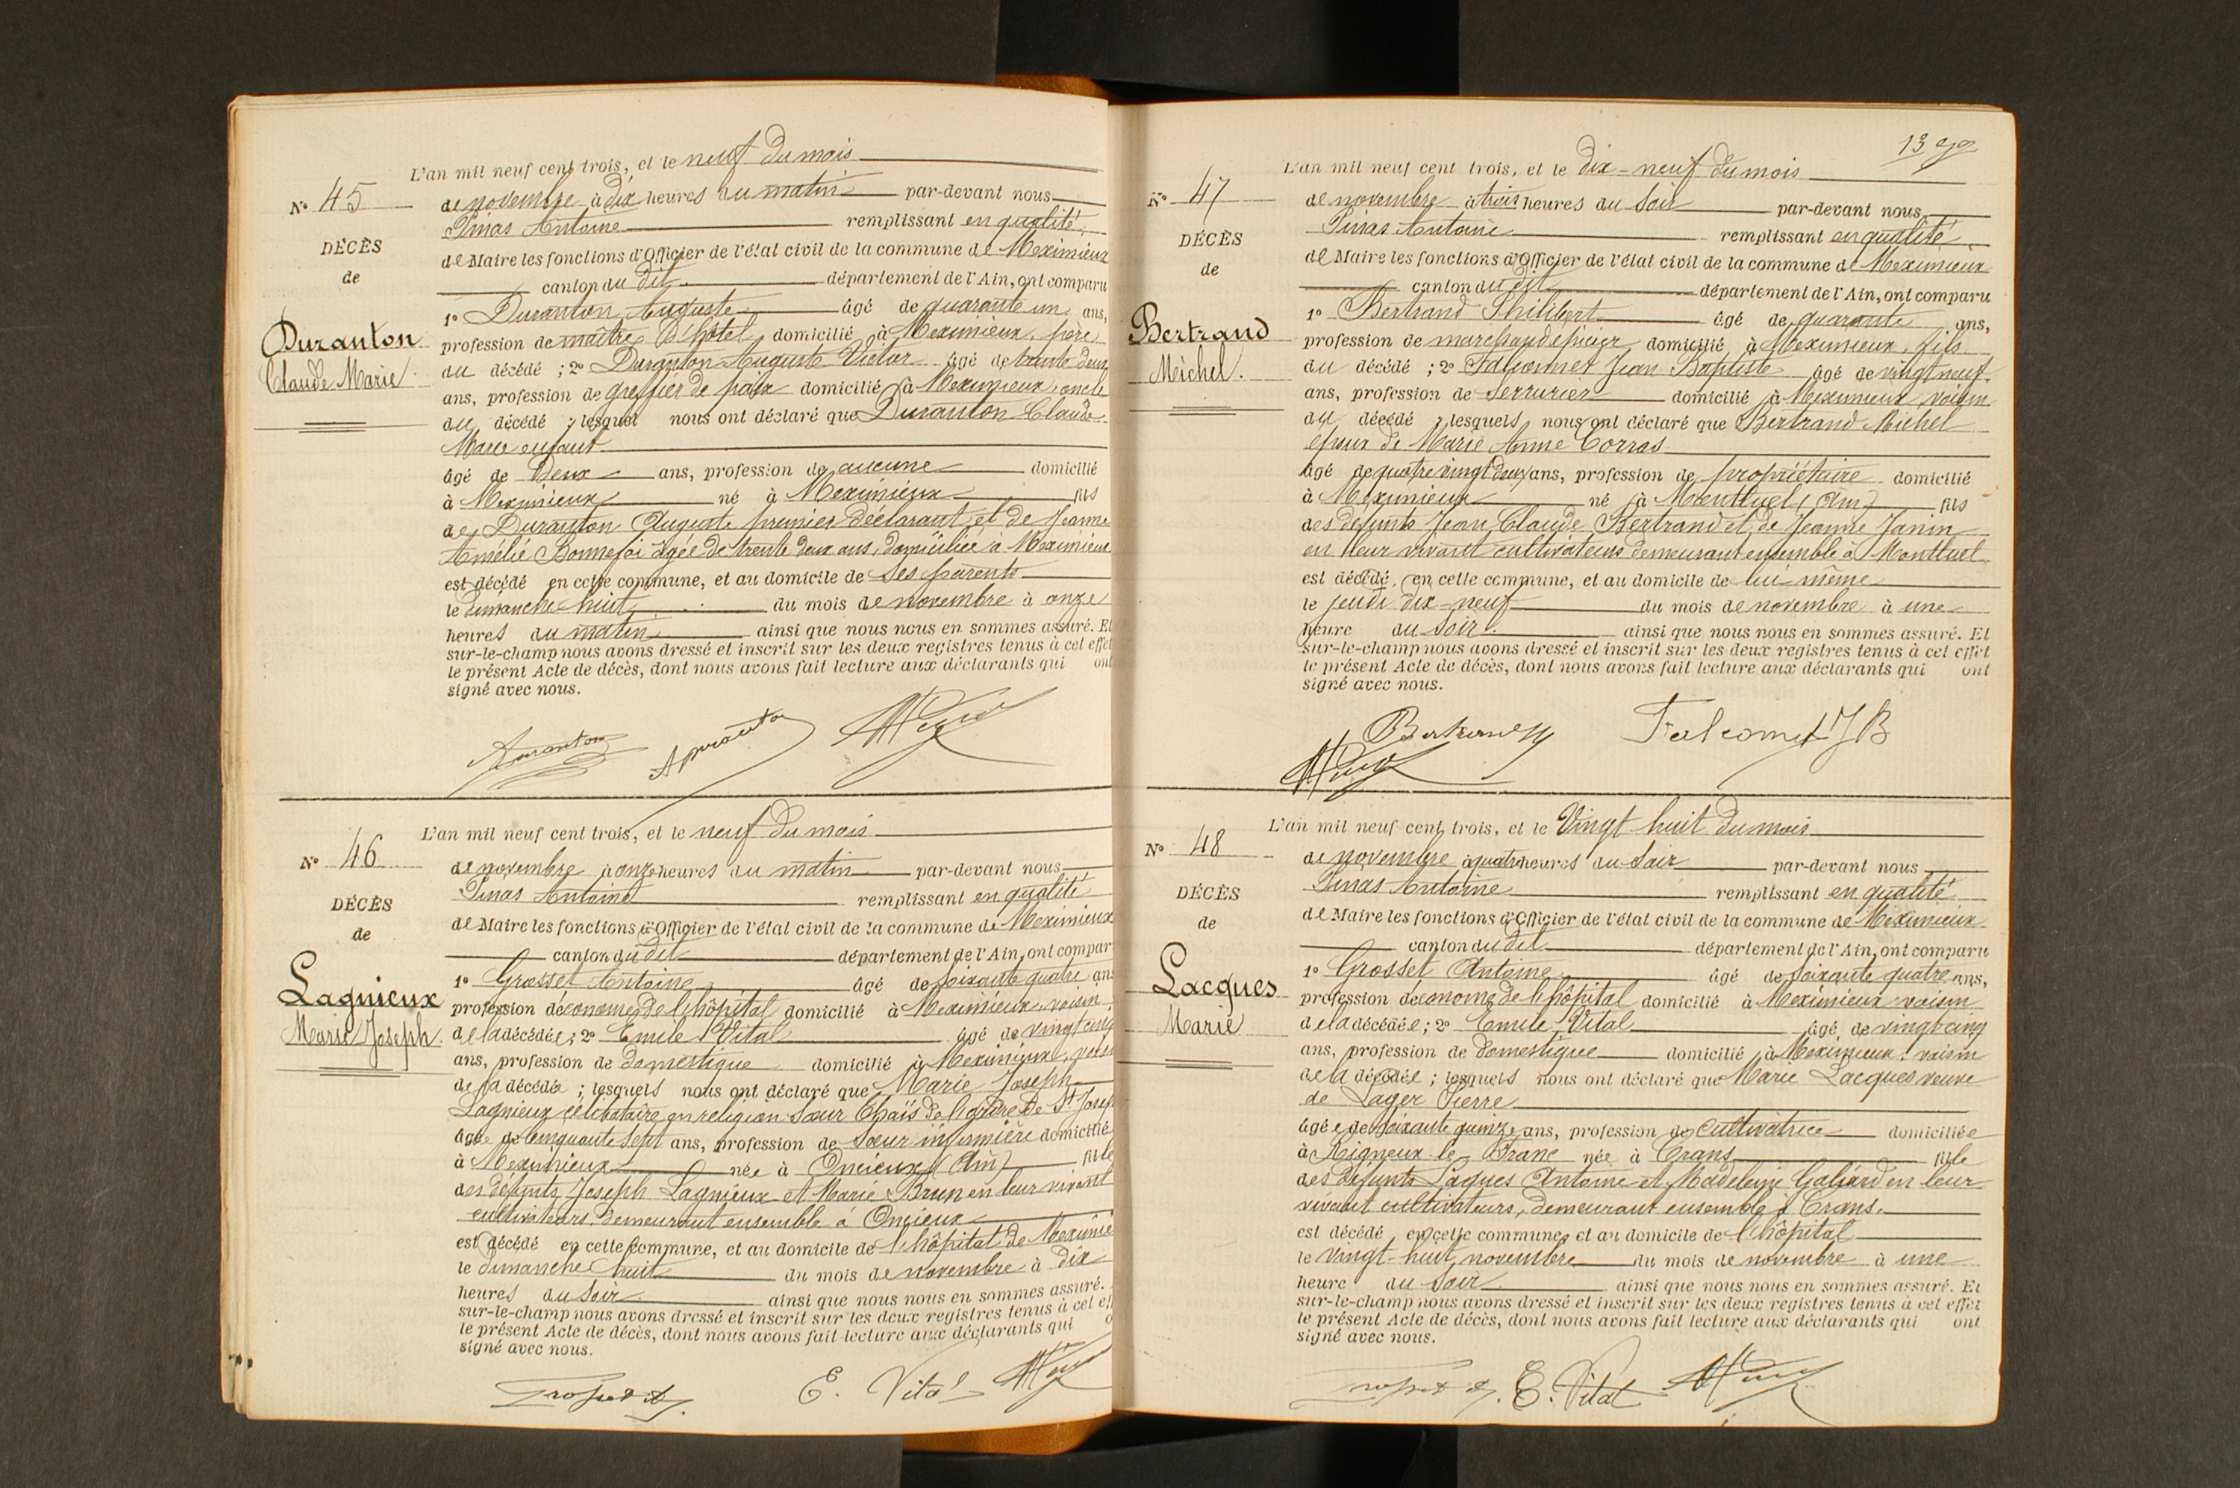 L'an mil neuf cent trois, et le neuf du mois
No 45
de novembre à dix heures du matin par-devant nous
Pinas Antoine remplissant en qualité
DÉCÈS
de Maire les fonctions d'Officier de l'état civil de la commune de Meximieux
de
canton du dit département de l'Ain, ont comparu
1o Duranton Auguste âgé de quarante un ans,
Duranton
Claude Marie
profession de maître d'hôtel domicilié à Meximieux, père
du décédé ; 2o Duranton Auguste Victor âgé de trente deux
ans, profession de greffier de paix domicilié à Meximieux, oncle
du décédé ; lesquel nous ont déclaré que Duranton Claude
Marie enfant
âgé de Deux ans, profession de aucune domicilié
à Meximieux né à Meximieux fils
de Duranton Auguste premier déclarant, et de Jeanne
Amélie Bonnefoi âgée de trente deux ans, domiciliée à Meximieux
est décédé en cette commune, et au domicile de ses parents
le dimanche huit du mois de novembre à onze
heures du matin ainsi que nous nous en sommes assuré. Et
sur-le-champ nous avons dressé et inscrit sur les deux registres tenus à cet effet
le présent Acte de décès, dont nous avons fait lecture aux déclarants qui ont
signé avec nous.
L'an mil neuf cent trois, et le neuf du mois
No 46
de novembre à onze heures du matin par-devant nous
Pinas Antoine remplissant en qualité
DÉCÈS
de Maire les fonctions d'Officier de l'état civil de la commune de Meximieux
de
canton du dit département de l'Ain, ont compar
1o Grosset Antoine âgé de soixante quatre ans
Lagnieux
Marie Joseph.
profession d'économe de l'hôpital domicilié à Meximieux, voisin
de la décédée ; 2o Emile Vital âgé de vingt cinq
ans, profession de domestique domicilié à Meximieux, voisi
de la décédée ; lesquels nous ont déclaré que Marie Joseph
Lagnieux célibataire, en religion sœur Thaïs de l'ordre de St Josep
âgée de cinquante sept ans, profession de sœur infirmière domicilié
à Meximieux née à Oncieux (Ain) fille
des défunts Joseph Lagnieux et Marie Brun en leur vivant
cultivateurs, demeurant ensemble à Oncieux
est décédé en cette commune, et au domicile de l'hôpital de Meximie
le dimanche huit du mois de novembre à dix
heures du soir ainsi que nous nous en sommes assuré.
sur-le-champ nous avons dressé et inscrit sur les deux registres tenus à cet eff
le présent Acte de décès, dont nous avons fait lecture aux déclarants qui o
signé avec nous.
E. Vital
13
L'an mil neuf cent trois, et le dix-neuf du mois
No 47
de novembre à trois heures du soir par-devant nous
Pinas Antoine remplissant en qualité
DÉCÈS
de Maire les fonctions d'Officier de l'état civil de la commune de Meximieux
de
canton du dit département de l'Ain, ont comparu
1o Bertrand Philibert âgé de quarante ans,
Bertrand
Michel.
profession de marchand épicier domicilié à Meximieux, fils
du décédé ; 2o Falconnet Jean Baptiste âgé de vingt neuf
ans, profession de serrurier domicilié à Meximieux voisin
du décédé ; lesquels nous ont déclaré que Bertrand Michel
époux de Marie Anne Corras
âgé de quatre vingt deux ans, profession de propriétaire domicilié
à Meximieux né à Montluel (Ain) fils
des défunts Jean Claude Bertrand et de Jeanne Janin
en leur vivant cultivateurs demeurant ensemble à Montluel
est décédé, en cette commune, et au domicile de lui-même
le jeudi dix-neuf du mois de novembre à une
heure du soir. ainsi que nous nous en sommes assuré. Et
sur-le-champ nous avons dressé et inscrit sur les deux registres tenus à cet effet
le présent Acte de décès, dont nous avons fait lecture aux déclarants qui ont
signé avec nous.
Falconnet JB
L'an mil neuf cent trois, et le Vingt huit du mois
No 48
de novembre à quatre heures du soir par-devant nous
Pinas Antoine remplissant en qualité
DÉCÈS
de Maire les fonctions d'Officier de l'état civil de la commune de Meximieux
de
canton du dit département de l'Ain, ont comparu
1o Grosset Antoine âgé de soixante quatre ans,
Lacques
Marie
profession d'économe de l'hôpital domicilié à Meximieux voisin
de la décédée ; 2o Emile Vital âgé de vingt cinq
ans, profession de domestique domicilié à Meximieux, voisin
de la décédée ; lesquels nous ont déclaré que Marie Lacques veuve
de Lager Pierre
âgée de soixante quinze ans, profession de cultivatrice domiciliée
à Rigneux le Franc née à Crans fille
des défunts Laques Antoine et Madeleine Galiard en leur
vivant cultivateurs, demeurant ensemble à Crans.
est décédé en cette commune, et au domicile de l'hôpital
le vingt-huit novembre du mois de novembre à une
heure du soir ainsi que nous nous en sommes assuré. Et
sur-le-champ nous avons dressé et inscrit sur les deux registres tenus à cet effet
le présent Acte de décès, dont nous avons fait lecture aux déclarants qui ont
signé avec nous.
E. Vital